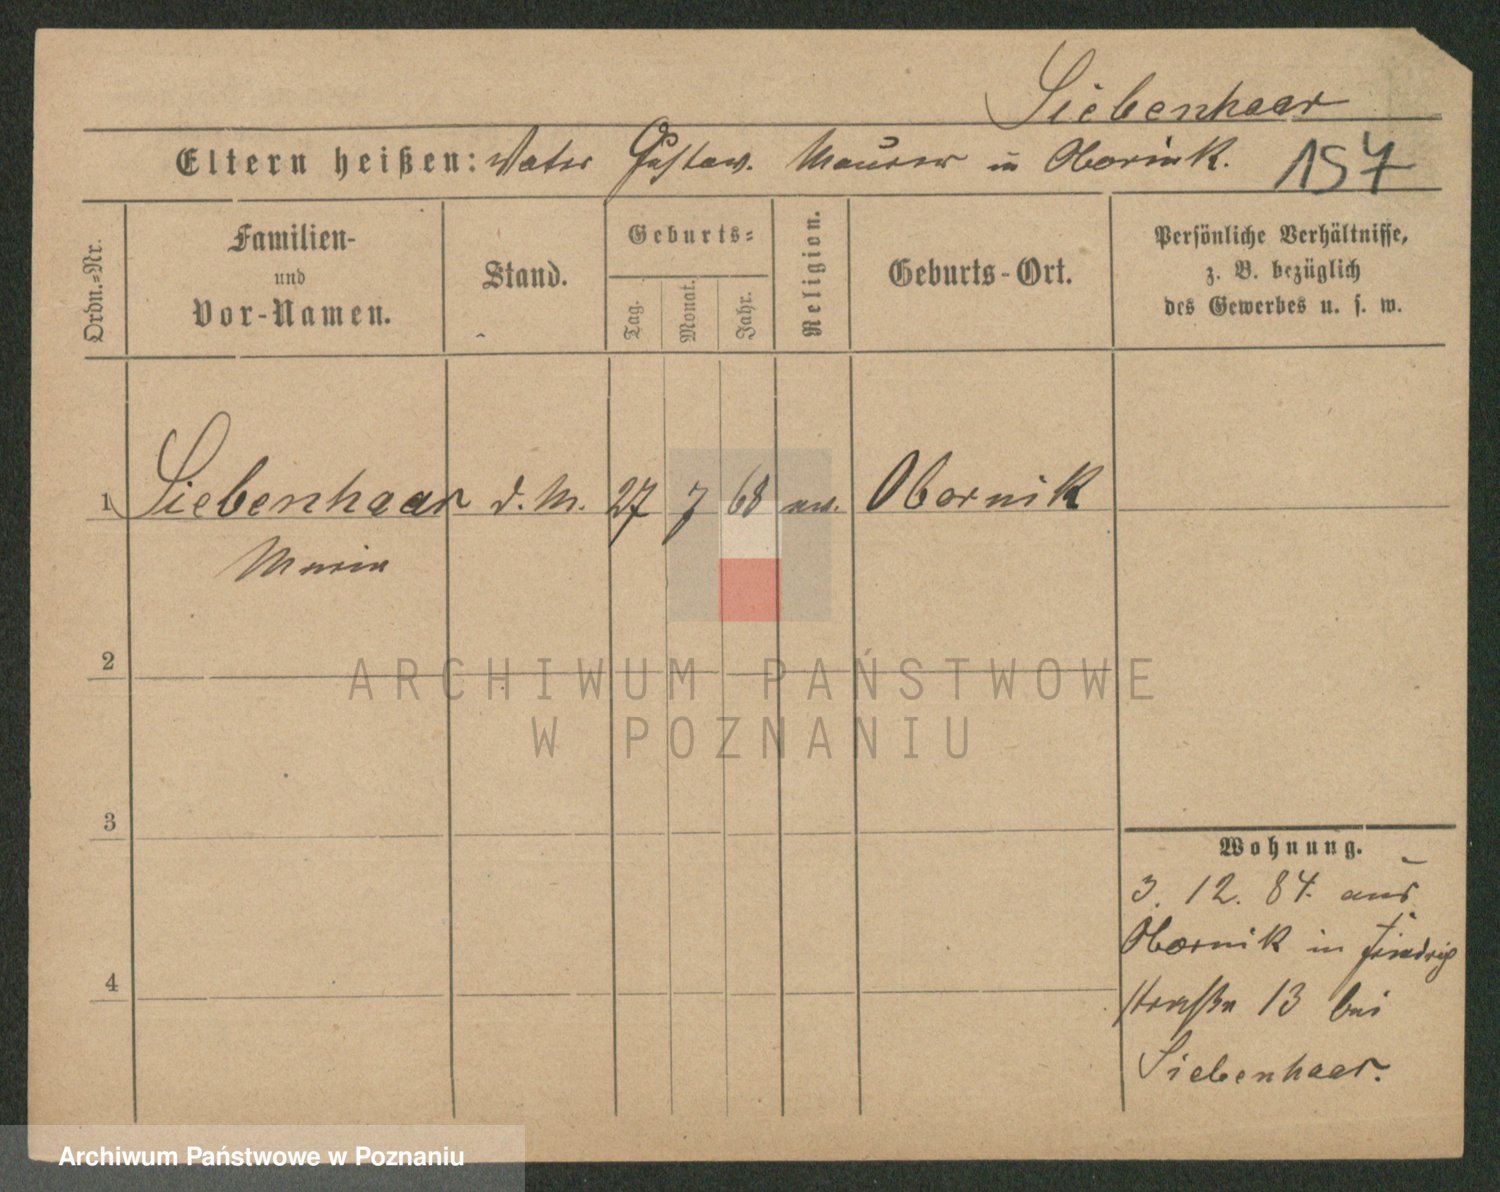 Siebenhaar
Eltern heißen: Vater Gustav. Maurer in Obornik. 157
Ordn.=Nr.
Familien-
und
Vor-Namen.
Stand.
Geburts=
Tag.
Monat.
Jahr.
Religion.
Geburts-Ort.
Persönliche Verhältnisse,
z. B. bezüglich
des Gewerbes u. s. w.
1 Siebenhaar d. M. 27 7 68 ev. Obornik
Maria
2
3
4
Wohnung.
3. 12. 84. aus
Obornik in
straße 13 bei
Siebenhaar.
ARCHIWUM PAŃSTWOWE
W POZNANIU
Archiwum Państwowe w Poznaniu